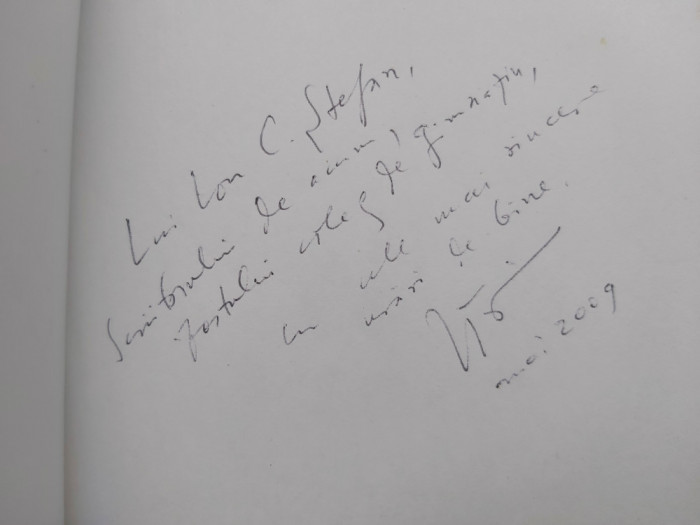 Lui Ion C. Ștefan,
Scriitorului de acum,
fostului coleg de gimnaziu,
cu cele mai sincere
urări de bine.
mai 2009